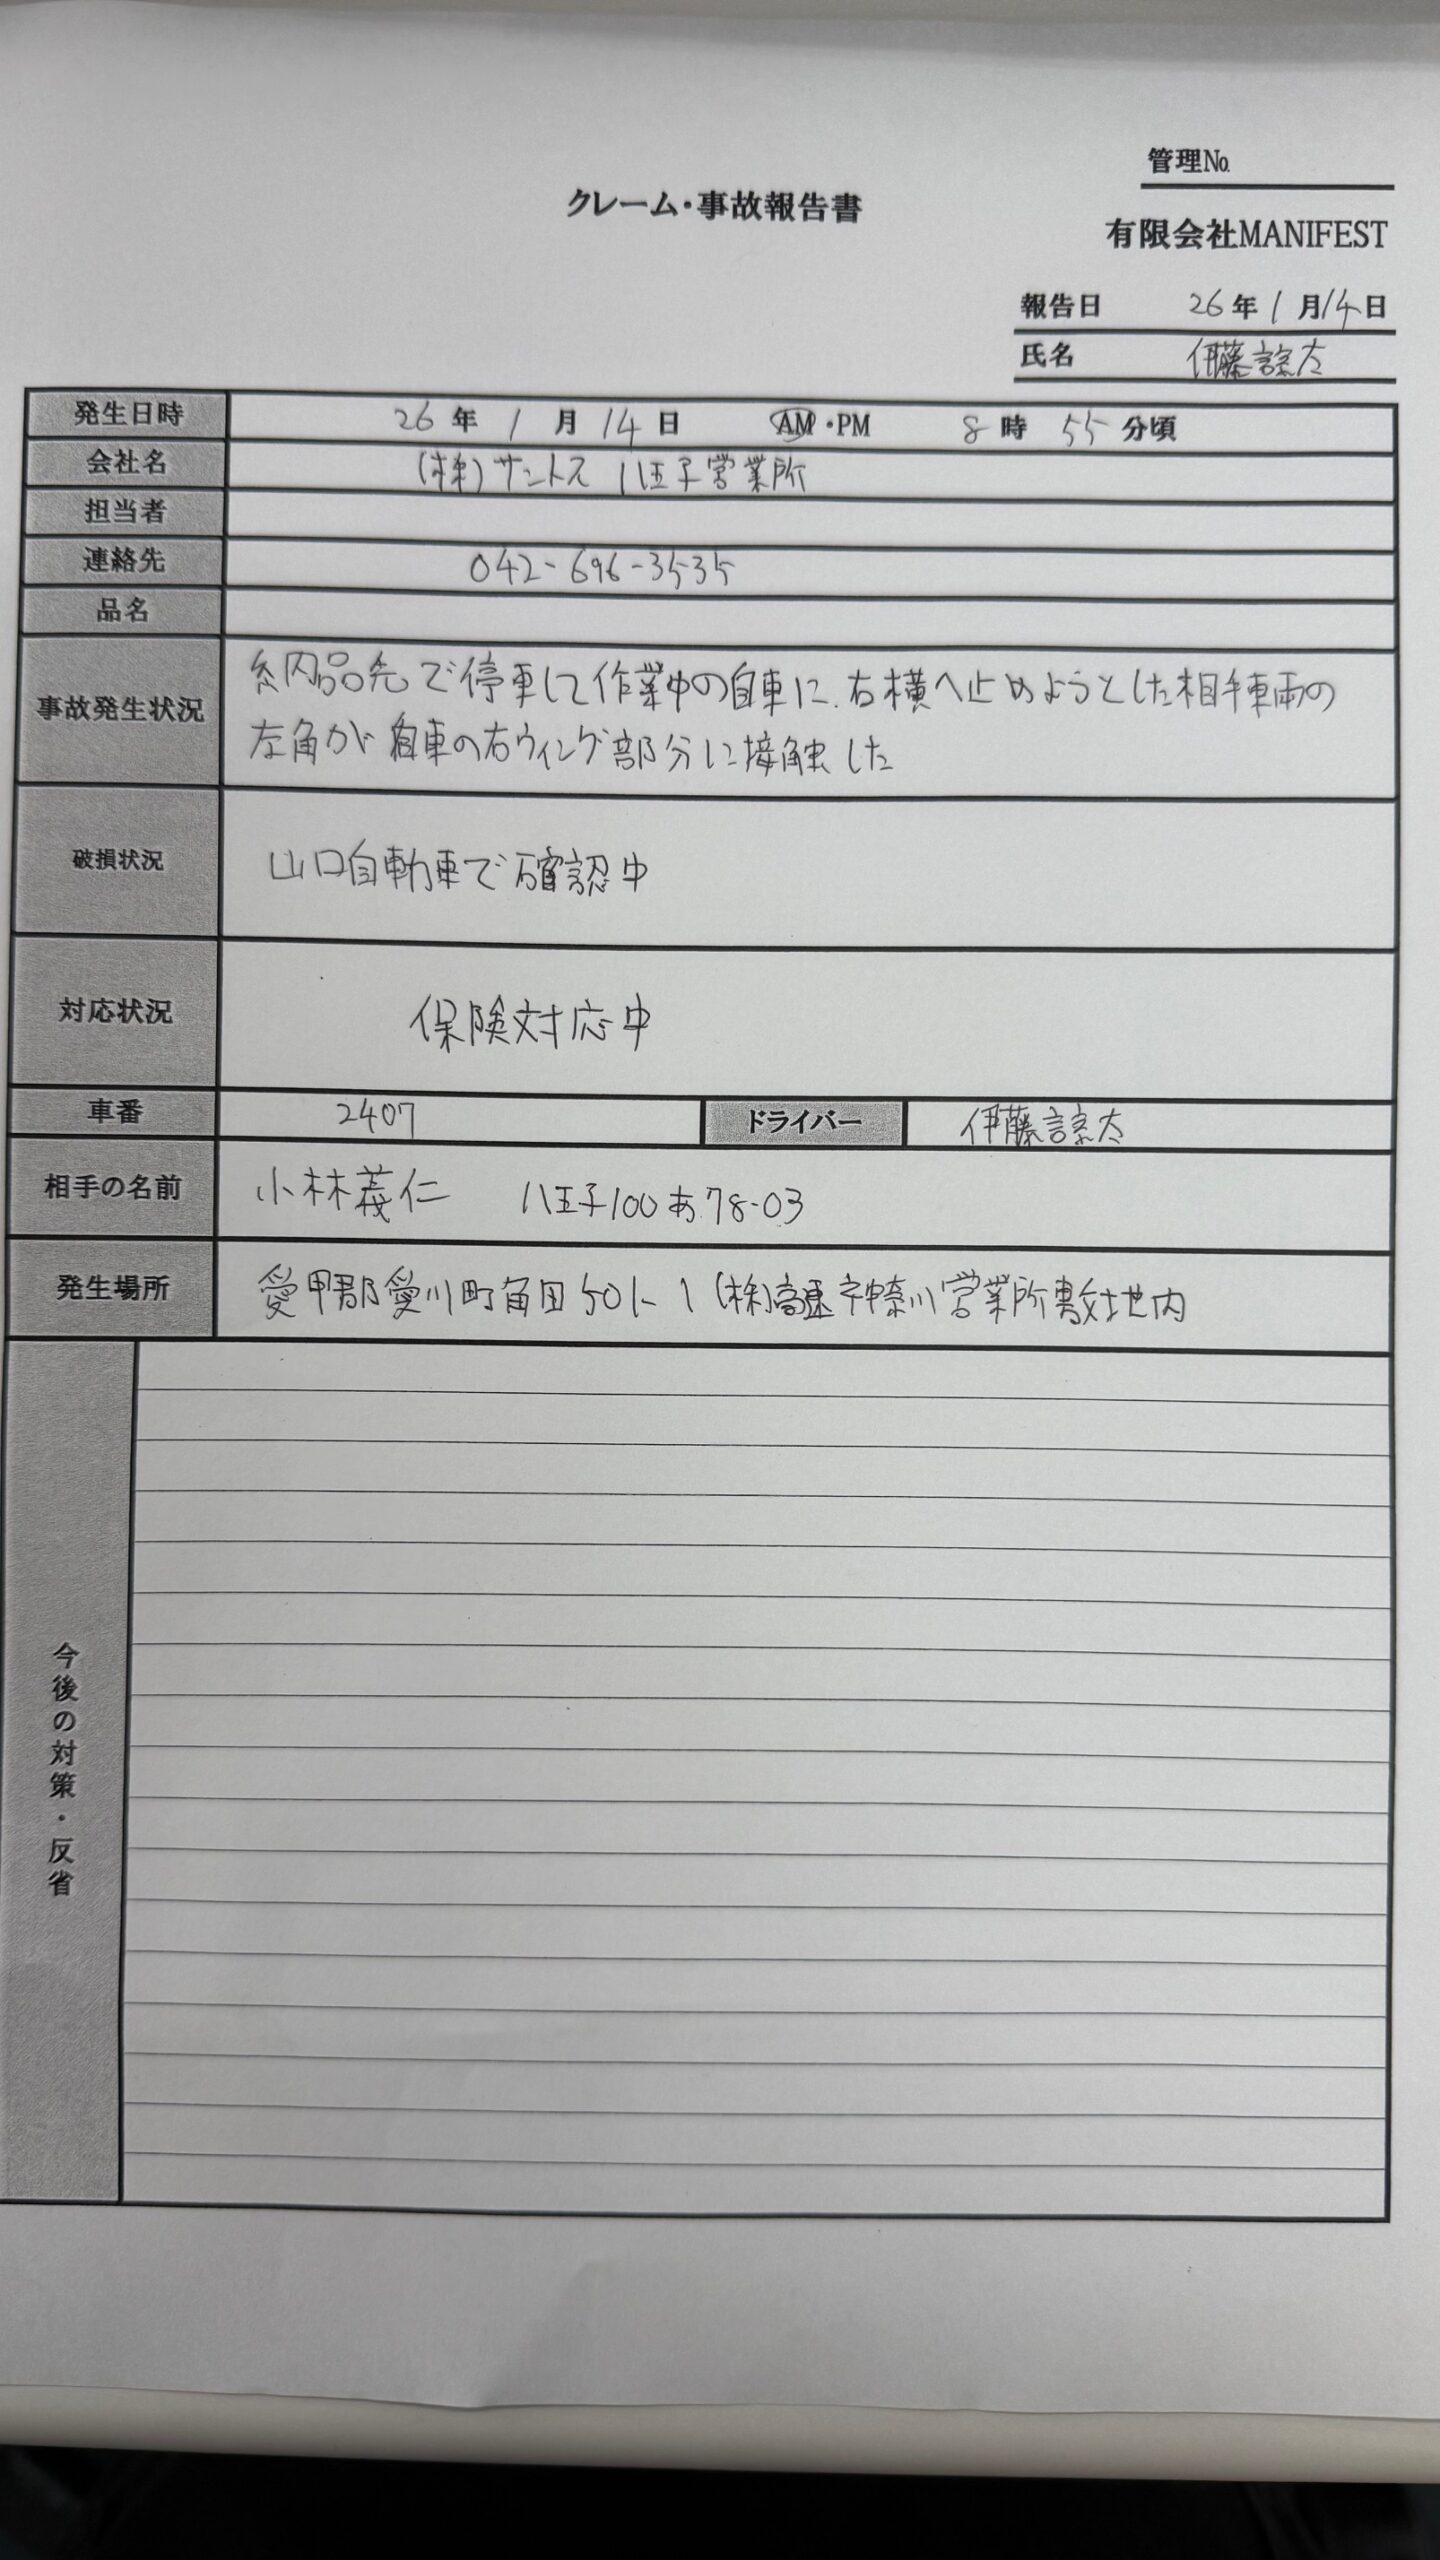 管理No.
クレーム・事故報告書
有限会社MANIFEST
報告日 26年1月14日
氏名 伊藤諒太
発生日時 26年1月14日 AM・PM 8時55分頃
会社名 (株)サントス 八王子営業所
担当者
連絡先 042-696-3535
品名
事故発生状況 納品先で停車して作業中の自車に、右横へ止めようとした相手車両の
左角が自車の右ウィング部分に接触した
破損状況 山口自動車で確認中
対応状況 保険対応中
車番 2407 ドライバー 伊藤諒太
相手の名前 小林義仁 八王子100あ78-03
発生場所 愛甲郡愛川町角田501-1 (株)高速 神奈川営業所敷地内
今後の対策・反省